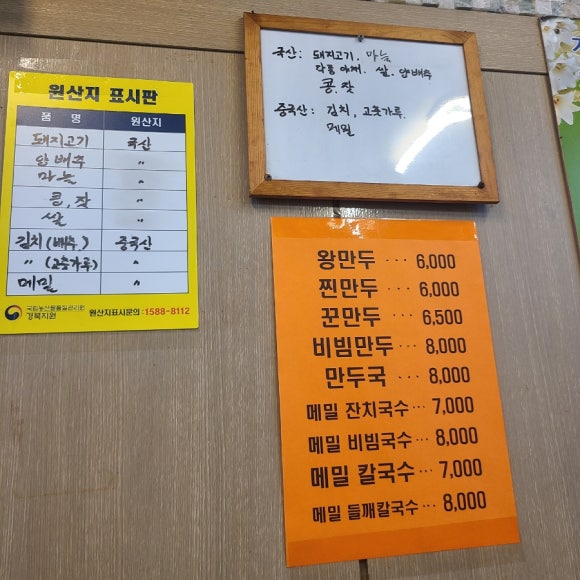 원산지 표시판
품 명 원산지
돼지고기 국산
양배추 〃
마늘 〃
콩, 잣 〃
쌀 〃
김치(배추) 중국산
〃 (고춧가루) 〃
메밀 〃
국립농산물품질관리원
경북지원
원산지표시문의:1588-8112
국산: 돼지고기, 마늘
각종 야채, 쌀, 양배추
콩, 잣
중국산: 김치, 고춧가루.
메밀
왕만두 ··· 6,000
찐만두 ··· 6,000
꾼만두 ··· 6,500
비빔만두 ··· 8,000
만두국 ··· 8,000
메밀 잔치국수 ··· 7,000
메밀 비빔국수 ··· 8,000
메밀 칼국수 ··· 7,000
메밀 들깨칼국수 ··· 8,000